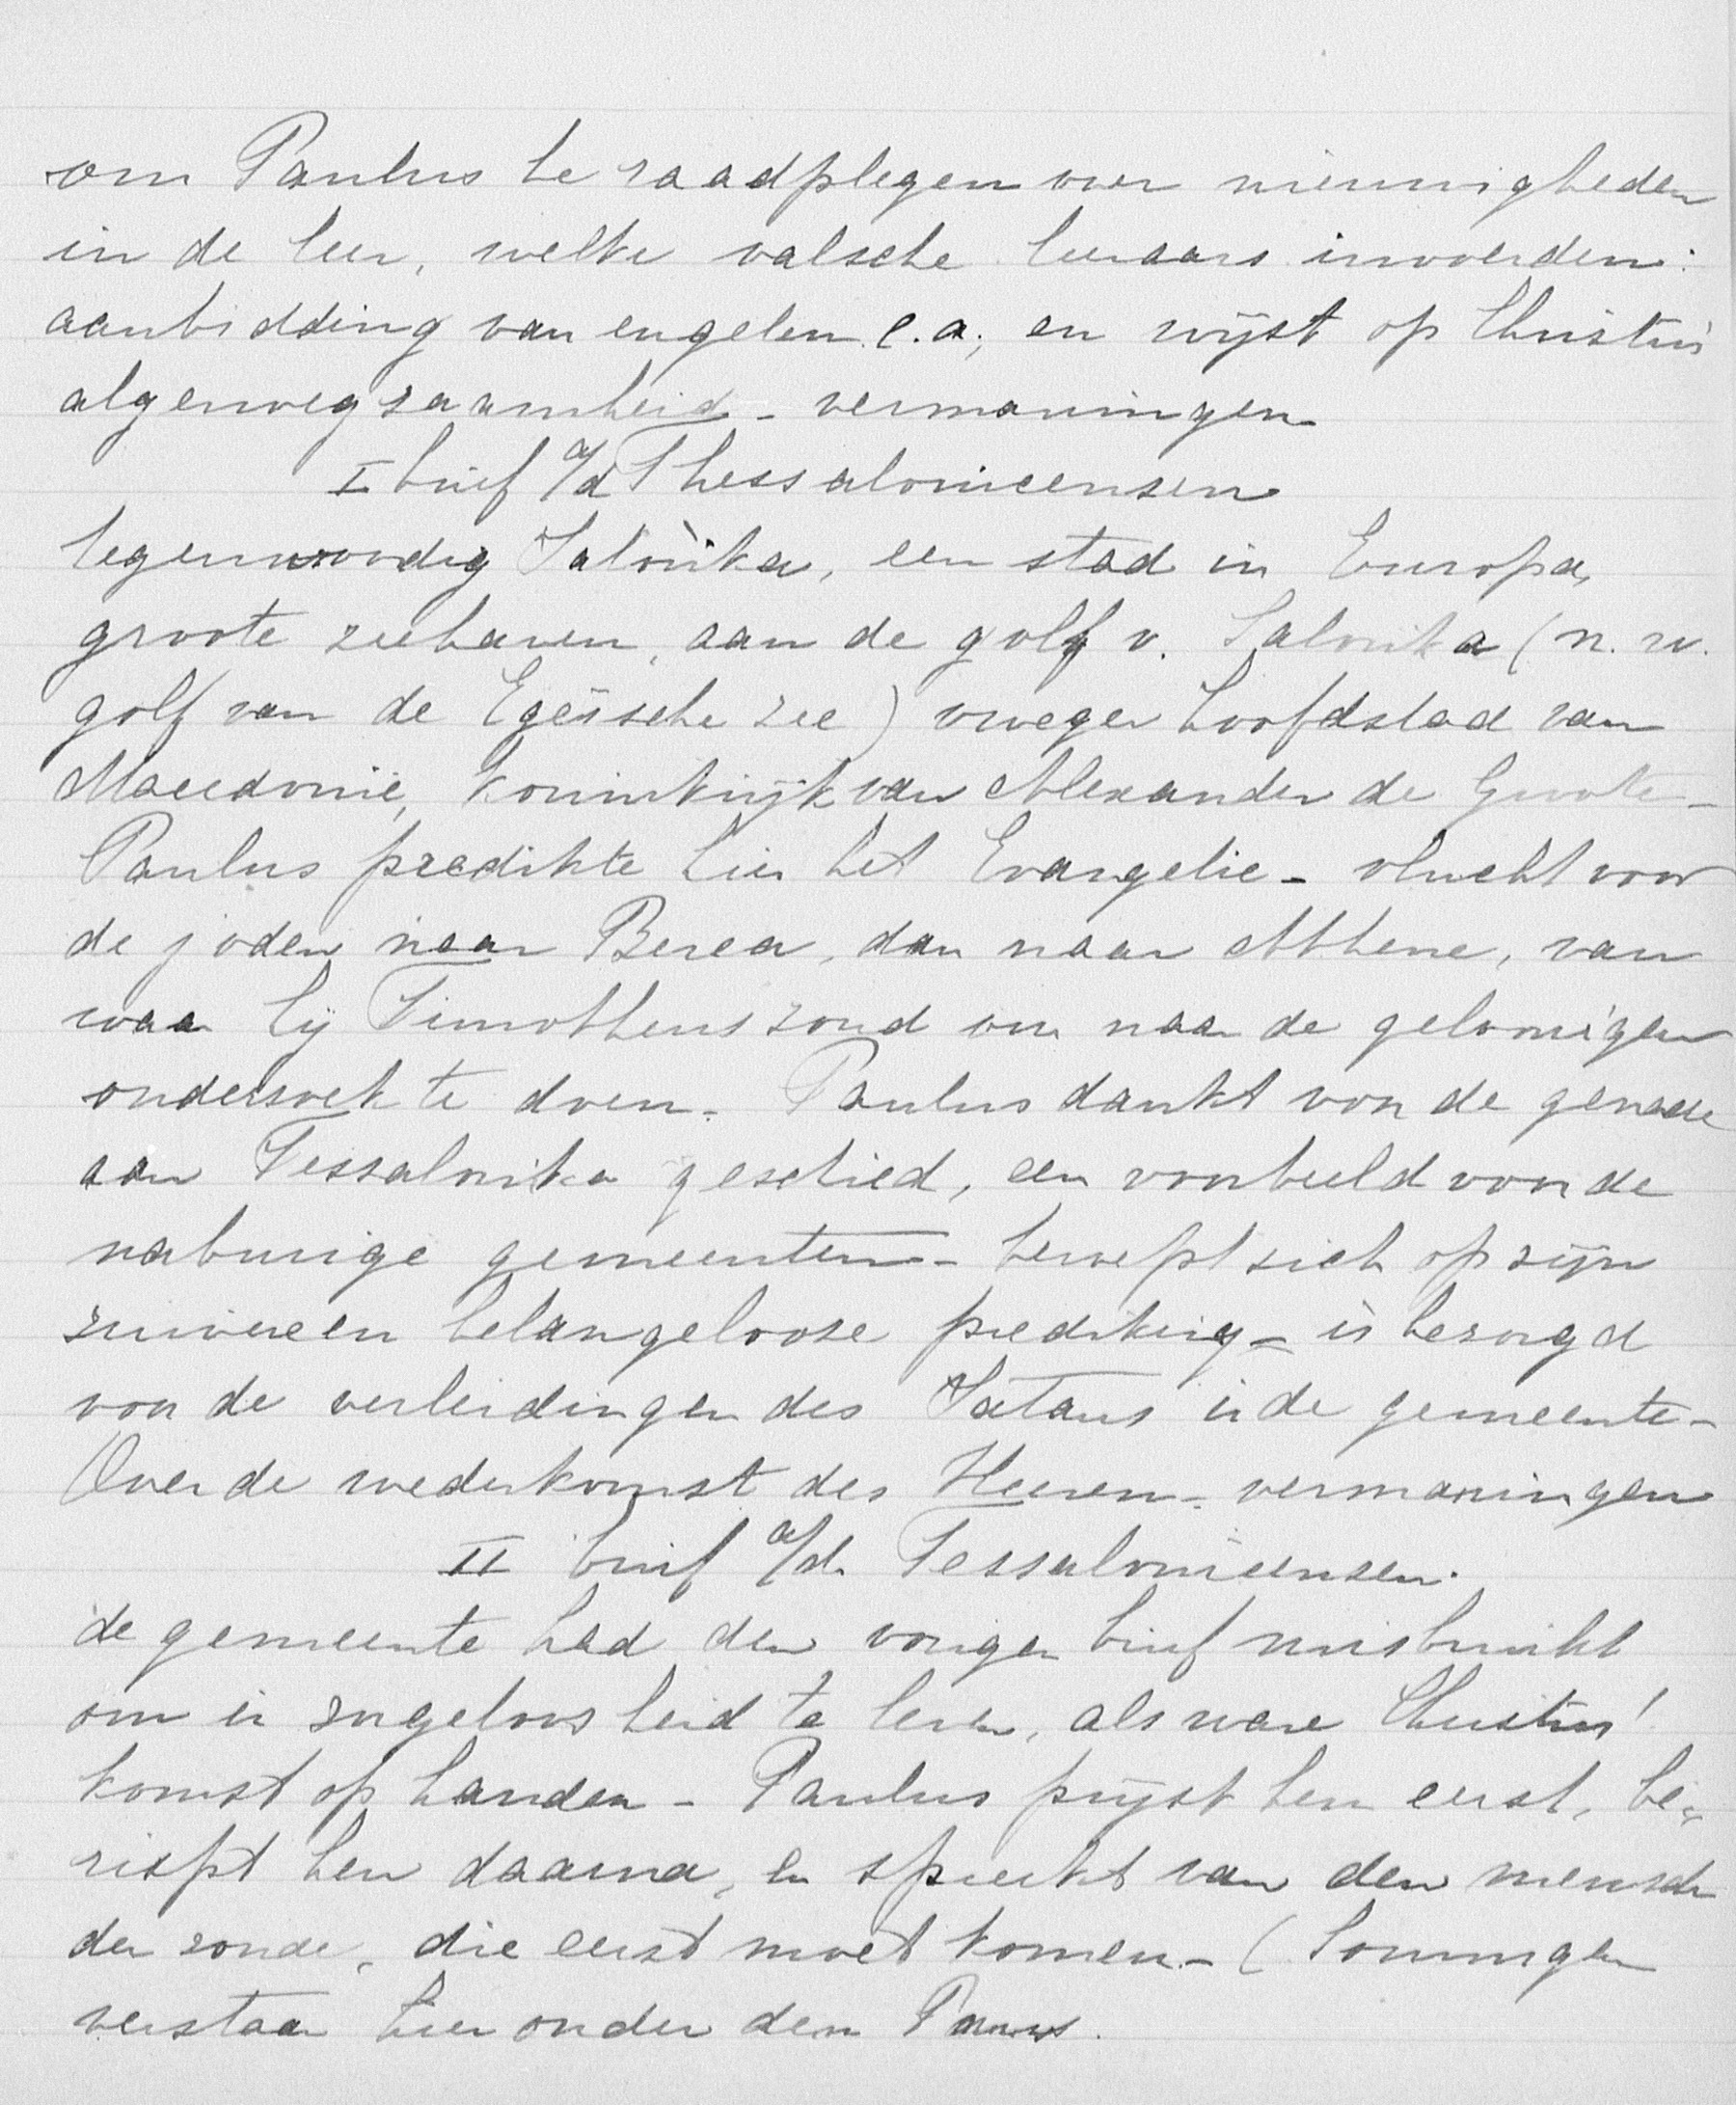 om Paulus te raadplegen over nieuwigheden
in de leer, welke valsche leeraars invoerden:
aanbidding van engelen e.a; en wijst op Christus'
algenoegzaamheid - vermaningen
I brief a/d Thessalonicensen
tegenwoordig Salonika, een stad in Europa,
groote zeehaven, aan de golf v. Salonika (n. w.
golf van de Egeïsche zee) vroeger hoofdstad van
Macedonië, koninkrijk van Alexander de Groote -
Paulus predikte hier het Evangelie - vlucht voor
de joden naar Berea, dan naar Athene, van
waar hij Timotheus zond om naar de geloovigen
onderzoek te doen - Paulus dankt voor de genade
aan Tessalonika geschied, een voorbeeld voor de
naburige gemeenten - beroept zich op zijn
zuivere en belangeloose prediking - is bezorgd
voor de verleidingen des Satans i/de gemeente -
Over de wederkomst des Heeren - vermaningen
II brief a/d. Tessalonicensen.
de gemeente had den vorigen brief misbruikt
om in zorgeloosheid te leven, als ware Christus'
komst op handen - Paulus prijst hen eerst, be-
rispt hen daarna, en spreekt van den mensch
der zonde, die eerst moet komen - (Sommigen
verstaan hieronder den Paus.